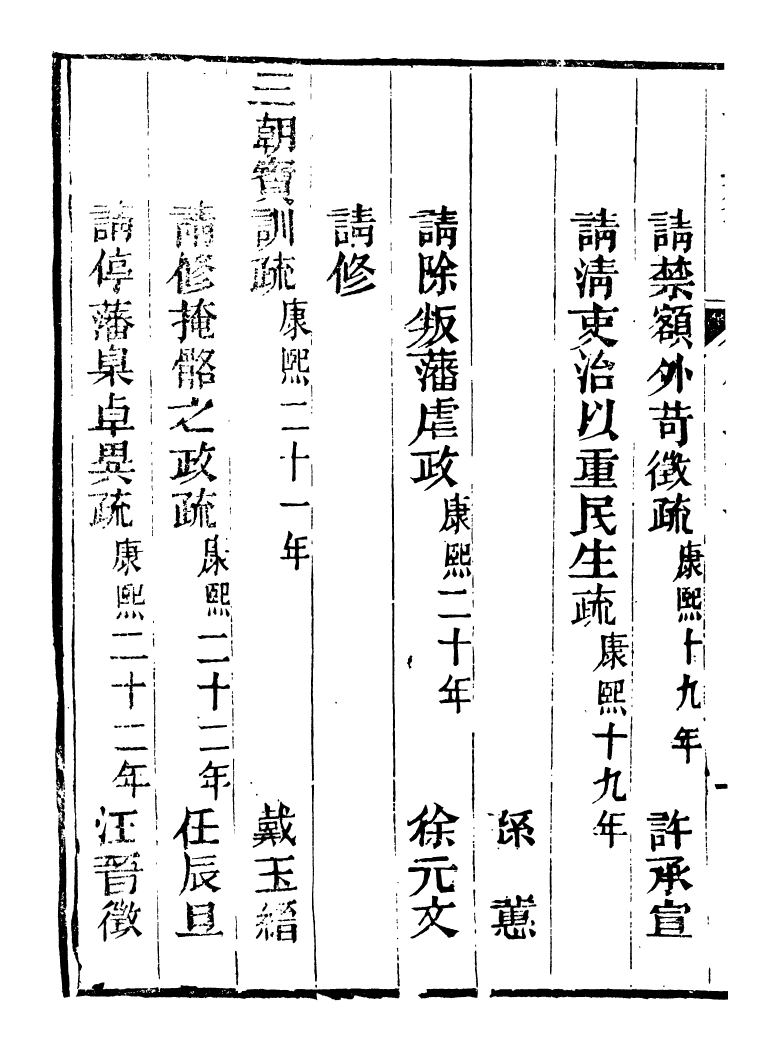 請禁額外苛徵疏康熙十九年 許承宣
請淸吏治以重民生疏康熙十九年
孫蕙
請除叛藩虐政康熙二十年 徐元文
請修
三朝寶訓疏康熙二十一年 戴玉縉
請修掩骼之政疏康熙二十二年 任辰旦
請停藩臬卓異疏康熙二十二年 汪晉徵